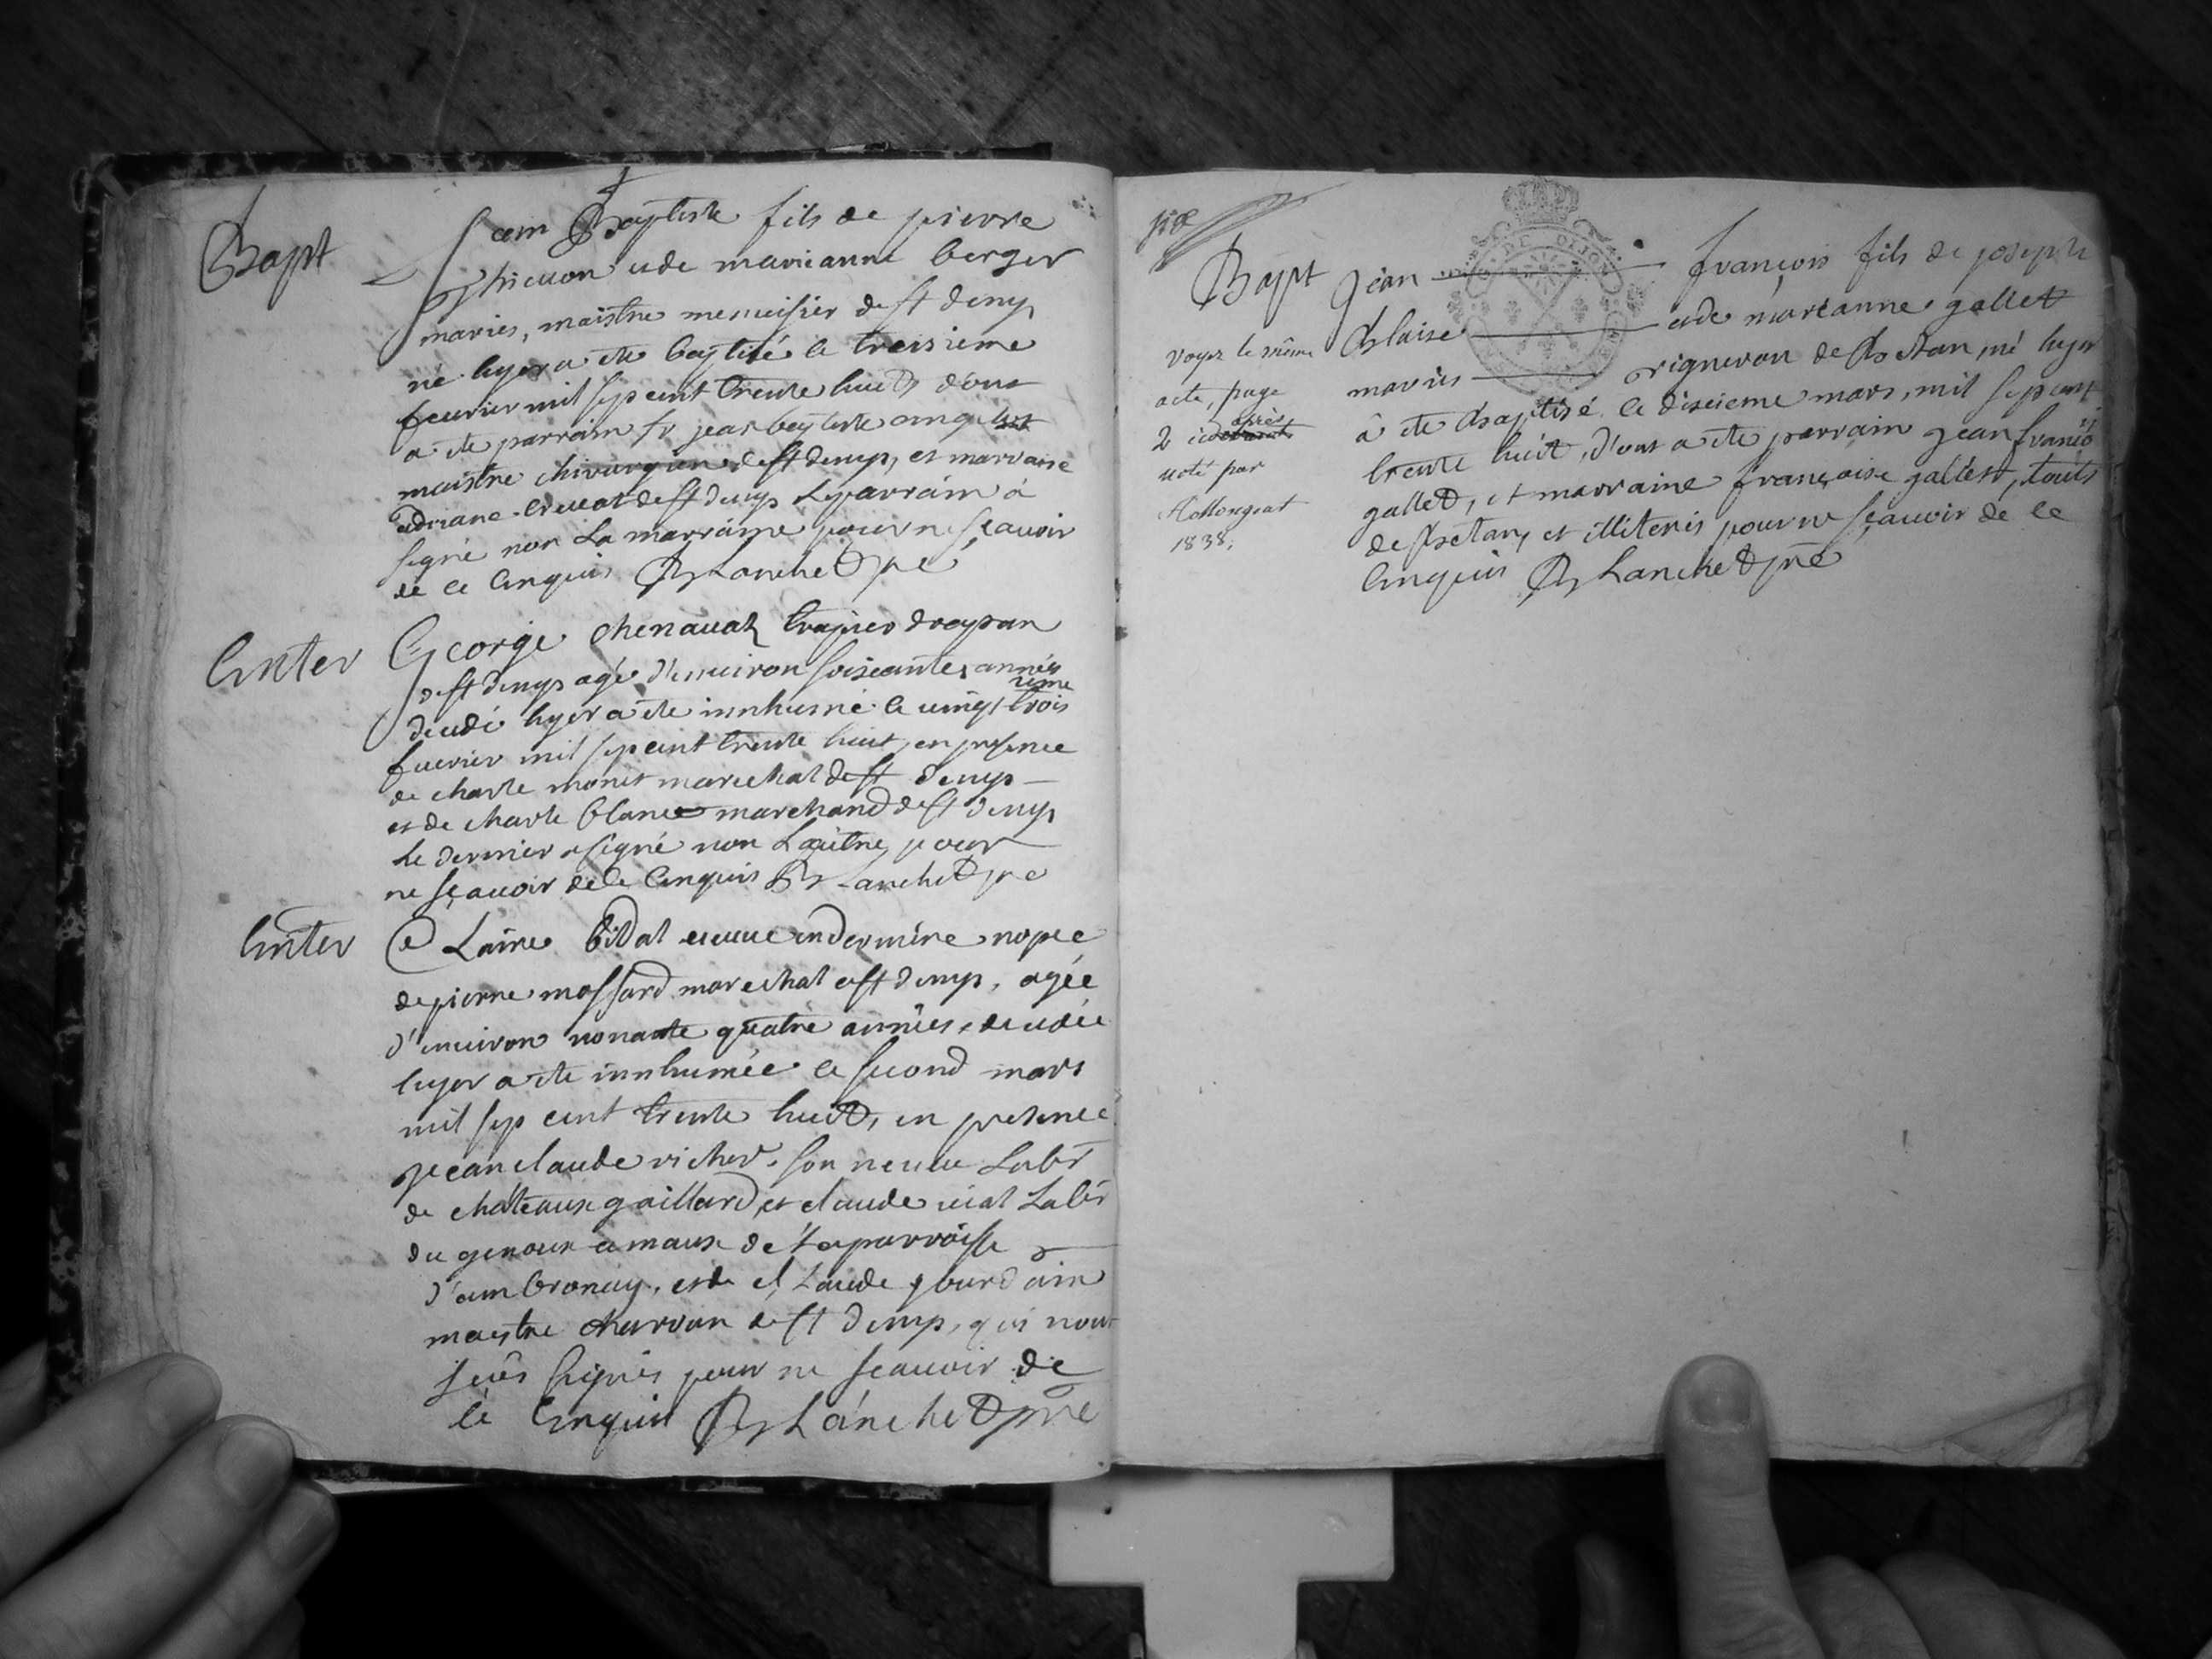 Bapt
Jean Baptiste fils de pierre
Thieuon et de marieanne berger
maries, maistre menuisier de st denys
né hyer a ete baptisé le treisieme
feurier mil sep cent trente huict d'ont
a ete parrain sr jean baptiste
maistre chirurgien de st denys, et marraine
adriane de st denys Le parrain à
signé non La marraine pour ne sçauoir
de ce enquis Blanchet pre
Enter
George chenauaz drapan
de st denys agé d'enuiron soixante années
decedé hyer a ete innhumé le uingt troisieme
feurier mil sep cent trente huit, en presence
de charle monet marechal de st denys
et de charle blanc marchand de st denys
Le dernier a signé non Lautre, pour
ne sçauoir de ce enquis Blanchet pre
Enter
Claine bidal ueuue en derniere nopce
de pierre massard marechal de st denys, agée
d'enuiron nonante quatre années, decedée
hyer a ete innhumée le second mars
mil sep cent trente huict, en presence
jean claude richer son neueu Labr
de châteaux gaillard, et claude uial Labr
du genoux de La parroisse
d'ambronay, et de claude jourdain
maystre charron de st denys, qui n'ont
sceus signés pour ne sçauoir de
ce enquis Blanchet pre
Bapt
Jean françois fils de joseph
Blaise et de marianne gallet
mariés vigneron de Bettan, né hyer
â ete Baptisé le disieme mars, mil sep cent
trente huit, d'ont a ete parrain jean françois
gallet, et marraine françoise gallet, touts
de Bettan, et illiterés pour ne sçauoir de ce
Enquis Blanchet pre
voyez le même
acte, page
2 après
noté par
1838.